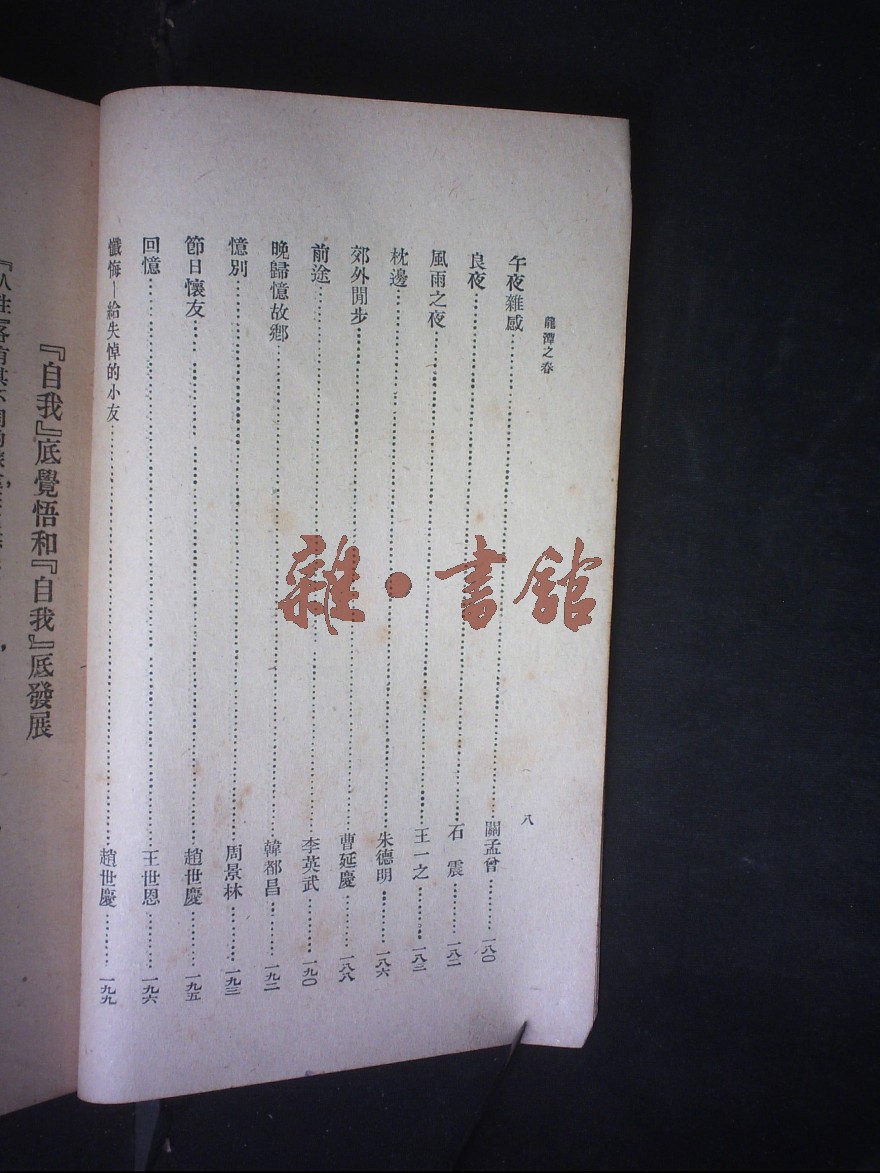 龍潭之春
八
午夜雜感⋯⋯關孟曾⋯⋯一八〇
良夜⋯⋯石 震⋯⋯一八二
風雨之夜⋯⋯王一之⋯⋯一八三
枕邊⋯⋯朱德明⋯⋯一八六
郊外閒步⋯⋯曹延慶⋯⋯一八八
前途⋯⋯李英武⋯⋯一九〇
晚歸憶故鄉⋯⋯韓都昌⋯⋯一九二
憶別⋯⋯周景林⋯⋯一九三
節日懷友⋯⋯趙世慶⋯⋯一九五
回憶⋯⋯王世恩⋯⋯一九六
懺悔—給失悼的小友⋯⋯趙世慶⋯⋯一九九
『自我』底覺悟和『自我』底發展
雜•書館